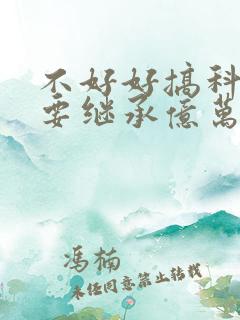 不好好搞科
要继承億萬
冯楠
未经同意禁止转载